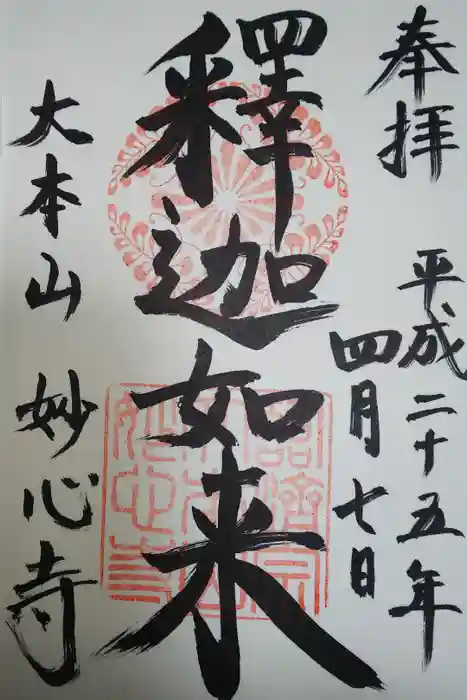 奉拝
平成二十五年
四月七日
釋迦如来
大本山 妙心寺